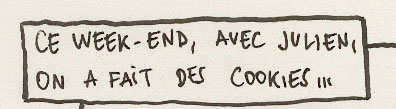 CE WEEK-END, AVEC JULIEN,
ON A FAIT DES COOKIES...